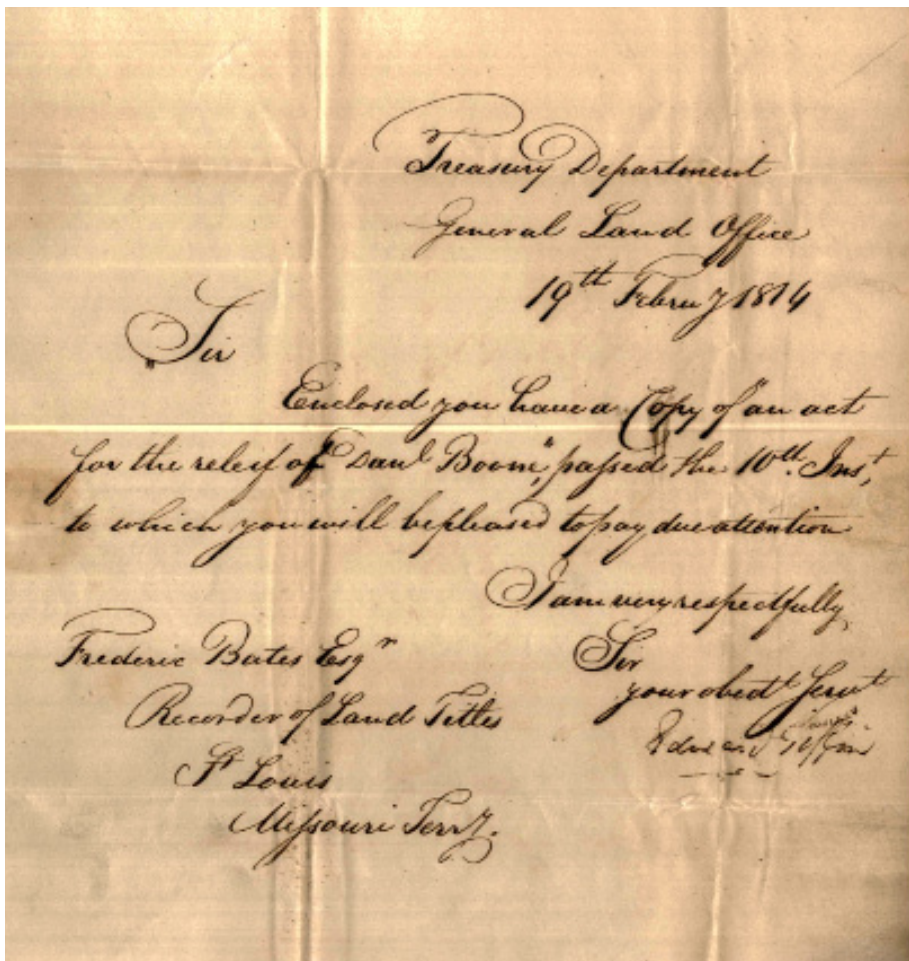 Treasury Department
General Land Office
19th Febru y 1814
Sir
Enclosed you have a Copy of "an act
for the releif of Danl Boom", passed the 10th Inst,
to which you will be pleased to pay due attention
I am very respectfully,
Sir
your obedt Servt
Edward Tiffin
Frederic Bates Esqr
Recorder of Land Titles
St Louis
Missouri Terry.